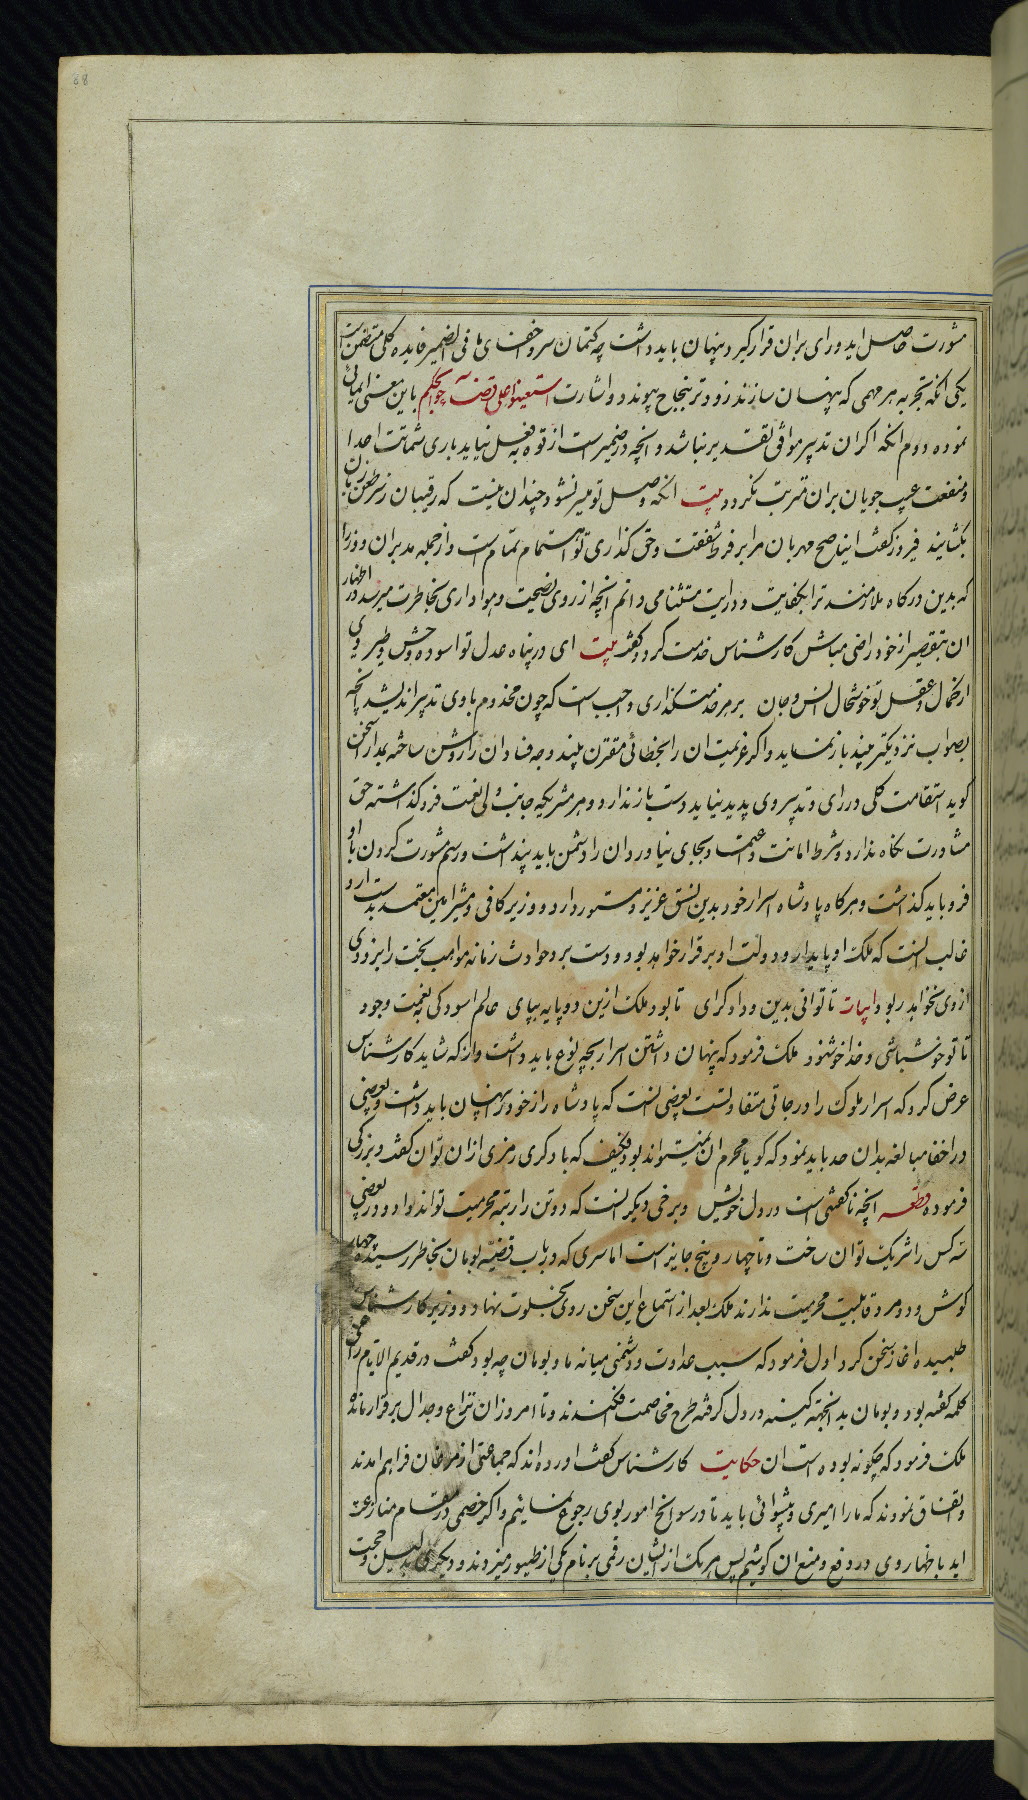 مشورت حاصل اید و رای بران قرار گیرد پنهان باید داشت چه کتمان سر و اخفای ما فی الضمیر فایده کلی متضمن است
یکی انکه بتجربه هر مهمی که پنهان سازند زودتر بنجاح پیوندد و اشارت استعینوا علی قضاء حوایجکم باین معنی ایمائی
نموده دوم انکه اگر ان تدبیر موافق تقدیر نباشد و انچه در ضمیر است از قوه بفعل نیاید باری شماتت اعدا
و منفعت عیب جویان بران مترتب نکردد بیت انکه وصل تو میسر نشود چندان نیست که رقیبان ز سر طعن زبان
بکشایند فیروز گفت ای ناصح مهربان مرا بر فرط شفقت و حق گذاری تو اهتمام تمام است و از جمله مدبران و وزرا
که بدین درگاه ملازمند ترا بکفایت و درایت مستثنا می دانم انچه از روی نصیحت و هواداری بخاطرت میرسد در اظهار
ان بتقصیر از خود راضی مباش کارشناس خدمت کرد و گفت بیت ای در پناه عدل تو اسوده وحش و طیر وی
از کمال عقل تو خوشحال انس و جان بر هر خدمتگذاری واجب است که چون مخدوم با وی تدبیر اندیشد انچه
بصواب نزدیکتر بیند باز نماید و اگر عزیمت ان را بخطائی مقترن بیند وجه فساد ان را روشن ساخته بمدارا سخن
گوید استقامت کلی در رای و تدبیر وی پدید نیاید دست باز ندارد و هر مشیر که جانب ولی نعمت فرو گذاشته حق
مشاورت نگاه ندارد و شرط امانت و اعتماد بجای نیاورد ان را دشمن باید پنداشت و رسم مشورت کردن با او
فرو باید گذاشت و هرگاه پادشاه اسرار خود بدین نسق عزیز و مستور دارد و وزیر کافی و مشیر امین معتمد بدست ارد
غالب انست که ملک او پایدار و دولت او برقرار خواهد بود و دست برد حوادث زمانه مواهب بخت را بزودی
از وی نخواهد ربود ابیات تا توانی بدین و داد گرای تا بود ملک ازین دو پایه بپای عالم اسودگی نعمت وجود
تا تو خوش باشی و خدا خوشنود ملک فرمود که پنهان داشتن اسرار بچه نوع باید داشت و از که شاید کارشناس
عرض کرد که اسرار ملوک را درجاتی متفاوتست بعضی انست که پادشاه را از خود پنهان باید داشت و یعنی
در اخفا مبالغه بدان حد باید نمود که گویا محرم ان نیستواند بود فکیف که با دیگری رمزی ازان توان گفت و بزرگی
فرموده قطعه انچه ناگفتنی است در دل خویش و برخی دیگر انست که دو تن را رتبه محرمیت تواند داد و در بعضی
سه کس را شریک توان ساخت و تا چهار و پنج جایز است اما سری که در باب قضیه بومان بخاطر رسیده جز چهار
گوش و دو مرد قابلیت محرمیت ندارند ملک بعد از استماع این سخن روی بخلوت نهاد و وزیر کارشناس
طلبیده اغاز سخن کرد اول فرمود که سبب عداوت و دشمنی میانه ما و بومان چه بود گفت در قدیم الایام زاغی
کلمه گفته بود و بومان بدانجهت کینه در دل گرفته طرح مخاصمت افکندند و تا امروز ان نزاع و جدال برقرار مانده
ملک فرمود که چگونه بوده است ان حکایت کارشناس گفت اورده اند که جماعتی از مرغان فراهم امدند
و اتفاق نمودند که ما را امیری و پیشوائی باید تا در سوانح امور بوی رجوع نمائیم و اگر خصمی در مقام منازعت
اید باظهار وی در دفع و منع ان کوشیم پس هر یک از ایشان رقمی بر نام یکی از طیور میزدند و دیگری بدلیل و حجت